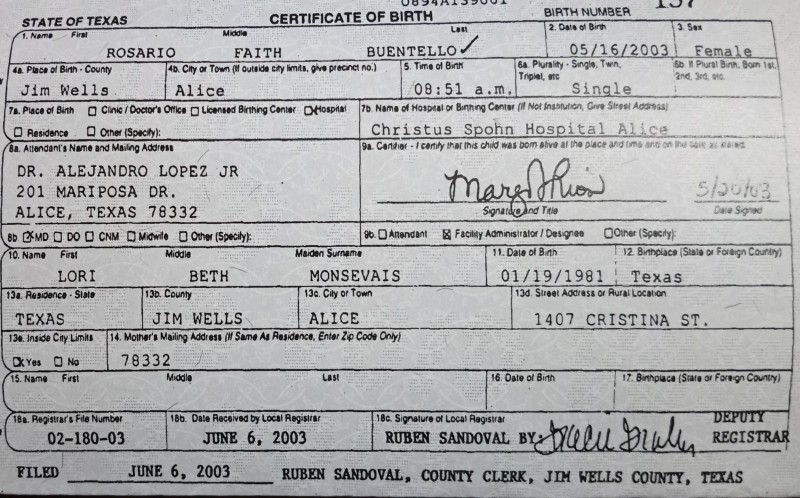 STATE OF TEXAS CERTIFICATE OF BIRTH BIRTH NUMBER
1. Name First Middle Last 2. Date of Birth 3. Sex
ROSARIO FAITH BUENTELLO 05/16/2003 Female
4a. Place of Birth - County 4b. City or Town (If outside city limits, give precinct no.) 5. Time of Birth 6a. Plurality - Single, Twin, Triplet, etc 6b. If Plural Birth, Born 1st, 2nd, 3rd, etc.
Jim Wells Alice 08:51 a.m. Single
7a. Place of Birth Clinic / Doctor's Office Licensed Birthing Center Hospital 7b. Name of Hospital or Birthing Center (If Not Institution, Give Street Address)
Residence Other (Specify): Christus Spohn Hospital Alice
8a. Attendant's Name and Mailing Address 9a. Certifier - I certify that this child was born alive at the place and time and on the date as stated.
DR. ALEJANDRO LOPEZ JR
201 MARIPOSA DR. 5/20/03
ALICE, TEXAS 78332 Signature and Title Date Signed
8b MD DO CNM Midwife Other (Specify): 9b. Attendant Facility Administrator / Designee Other (Specify):
10. Name First Middle Maiden Surname 11. Date of Birth 12. Birthplace (State or Foreign Country)
LORI BETH MONSEVAIS 01/19/1981 Texas
13a. Residence - State 13b. County 13c. City or Town 13d. Street Address or Rural Location
TEXAS JIM WELLS ALICE 1407 CRISTINA ST.
13e. Inside City Limits 14. Mother's Mailing Address (If Same As Residence, Enter Zip Code Only)
Yes No 78332
15. Name First Middle Last 16. Date of Birth 17. Birthplace (State or Foreign Country)
18a. Registrar's File Number 18b. Date Received by Local Registrar 18c. Signature of Local Registrar DEPUTY
02-180-03 JUNE 6, 2003 RUBEN SANDOVAL BY: REGISTRAR
FILED JUNE 6, 2003 RUBEN SANDOVAL, COUNTY CLERK, JIM WELLS COUNTY, TEXAS